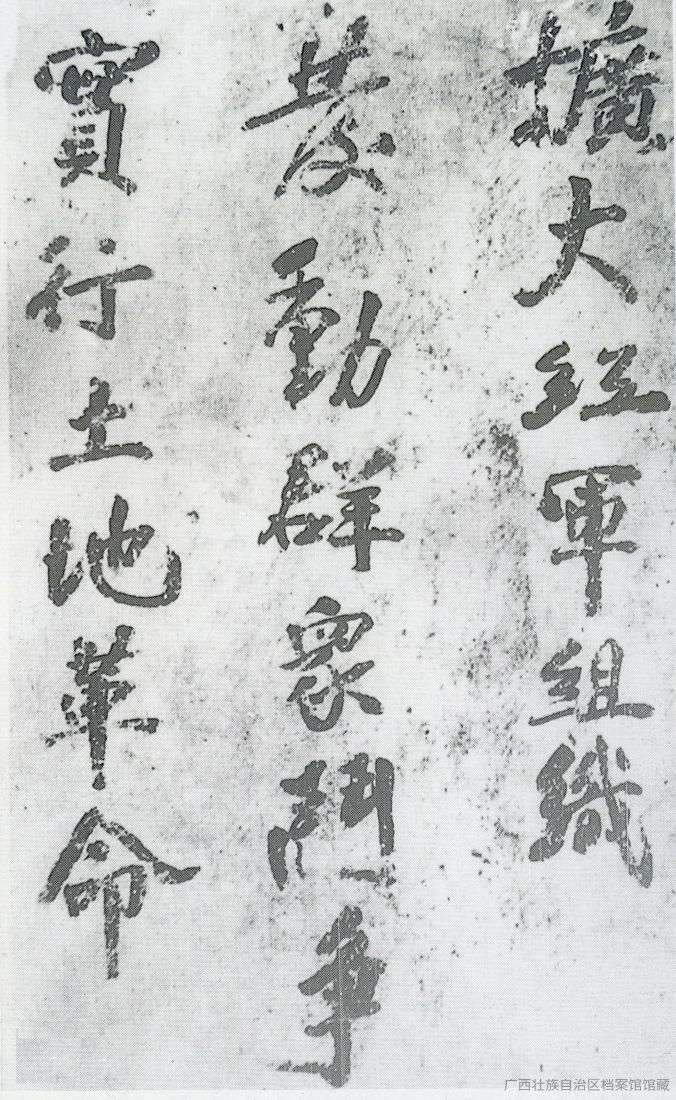 擴大紅軍組織
發動群衆鬥爭
實行土地革命
广西壮族自治区档案馆馆藏